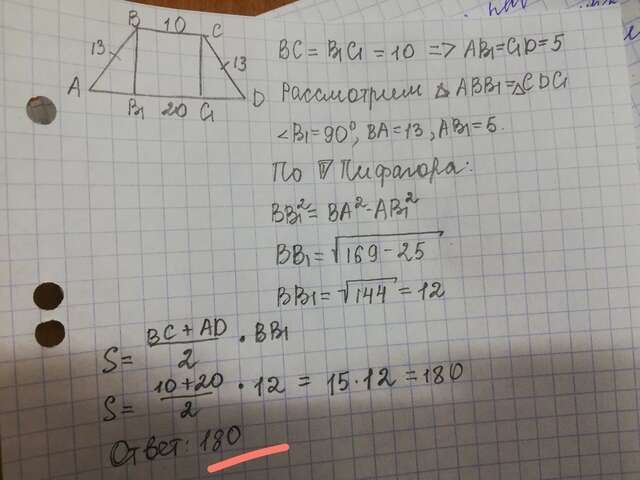 B 10 C
13 13
A B₁ 20 C₁ D
BC = B₁C₁ = 10 => AB₁ = C₁D = 5
Рассмотрим △ ABB₁ = △CDC₁
∠B₁ = 90°, BA = 13, AB₁ = 5.
По Т Пифагора:
BB₁² = BA² - AB₁²
BB₁ = √169 - 25
BB₁ = √144 = 12
S = (BC + AD)/2 · BB₁
S = (10 + 20)/2 · 12 = 15 · 12 = 180
Ответ: 180